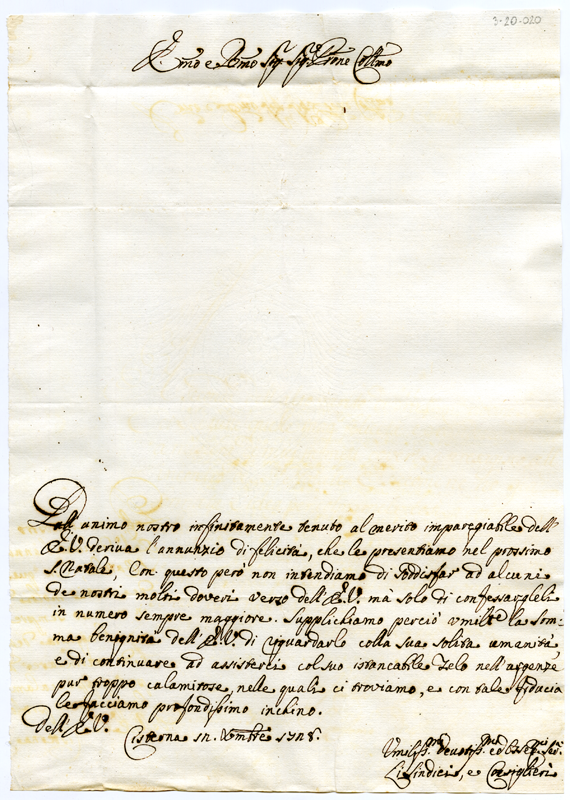 3-20-020
E.mo e R.mo Sig.r Sig.r Prone Coll.mo
Dall'animo nostro infinitamente tenuto al merito impareggiabile dell'
E.V. deriva l'annunzio di felicità, che le presentiamo nel prossimo
S. Natale, Con questo però non intendiamo di soddisfar ad alcuni
de nostri molti doveri verso dell'E.V. mà solo di confessargleli
in numero sempre maggiore. Supplichiamo perciò umilte la som:
ma benignità dell'E.V. di riguardarlo colla sua solita umanità
e di continuare ad assisterci col suo istancabile Zelo nell'urgenze
pur troppo calamitose, nelle quali ci troviamo, e con tale fiducia
le facciamo profondissimo inchino.
Dell'E.V.
Cisterna 17. Xmbre 1748.
Umiliss.mi devotiss.mi ed Osseq.mi Ser.
Li Sindici, e Consiglieri